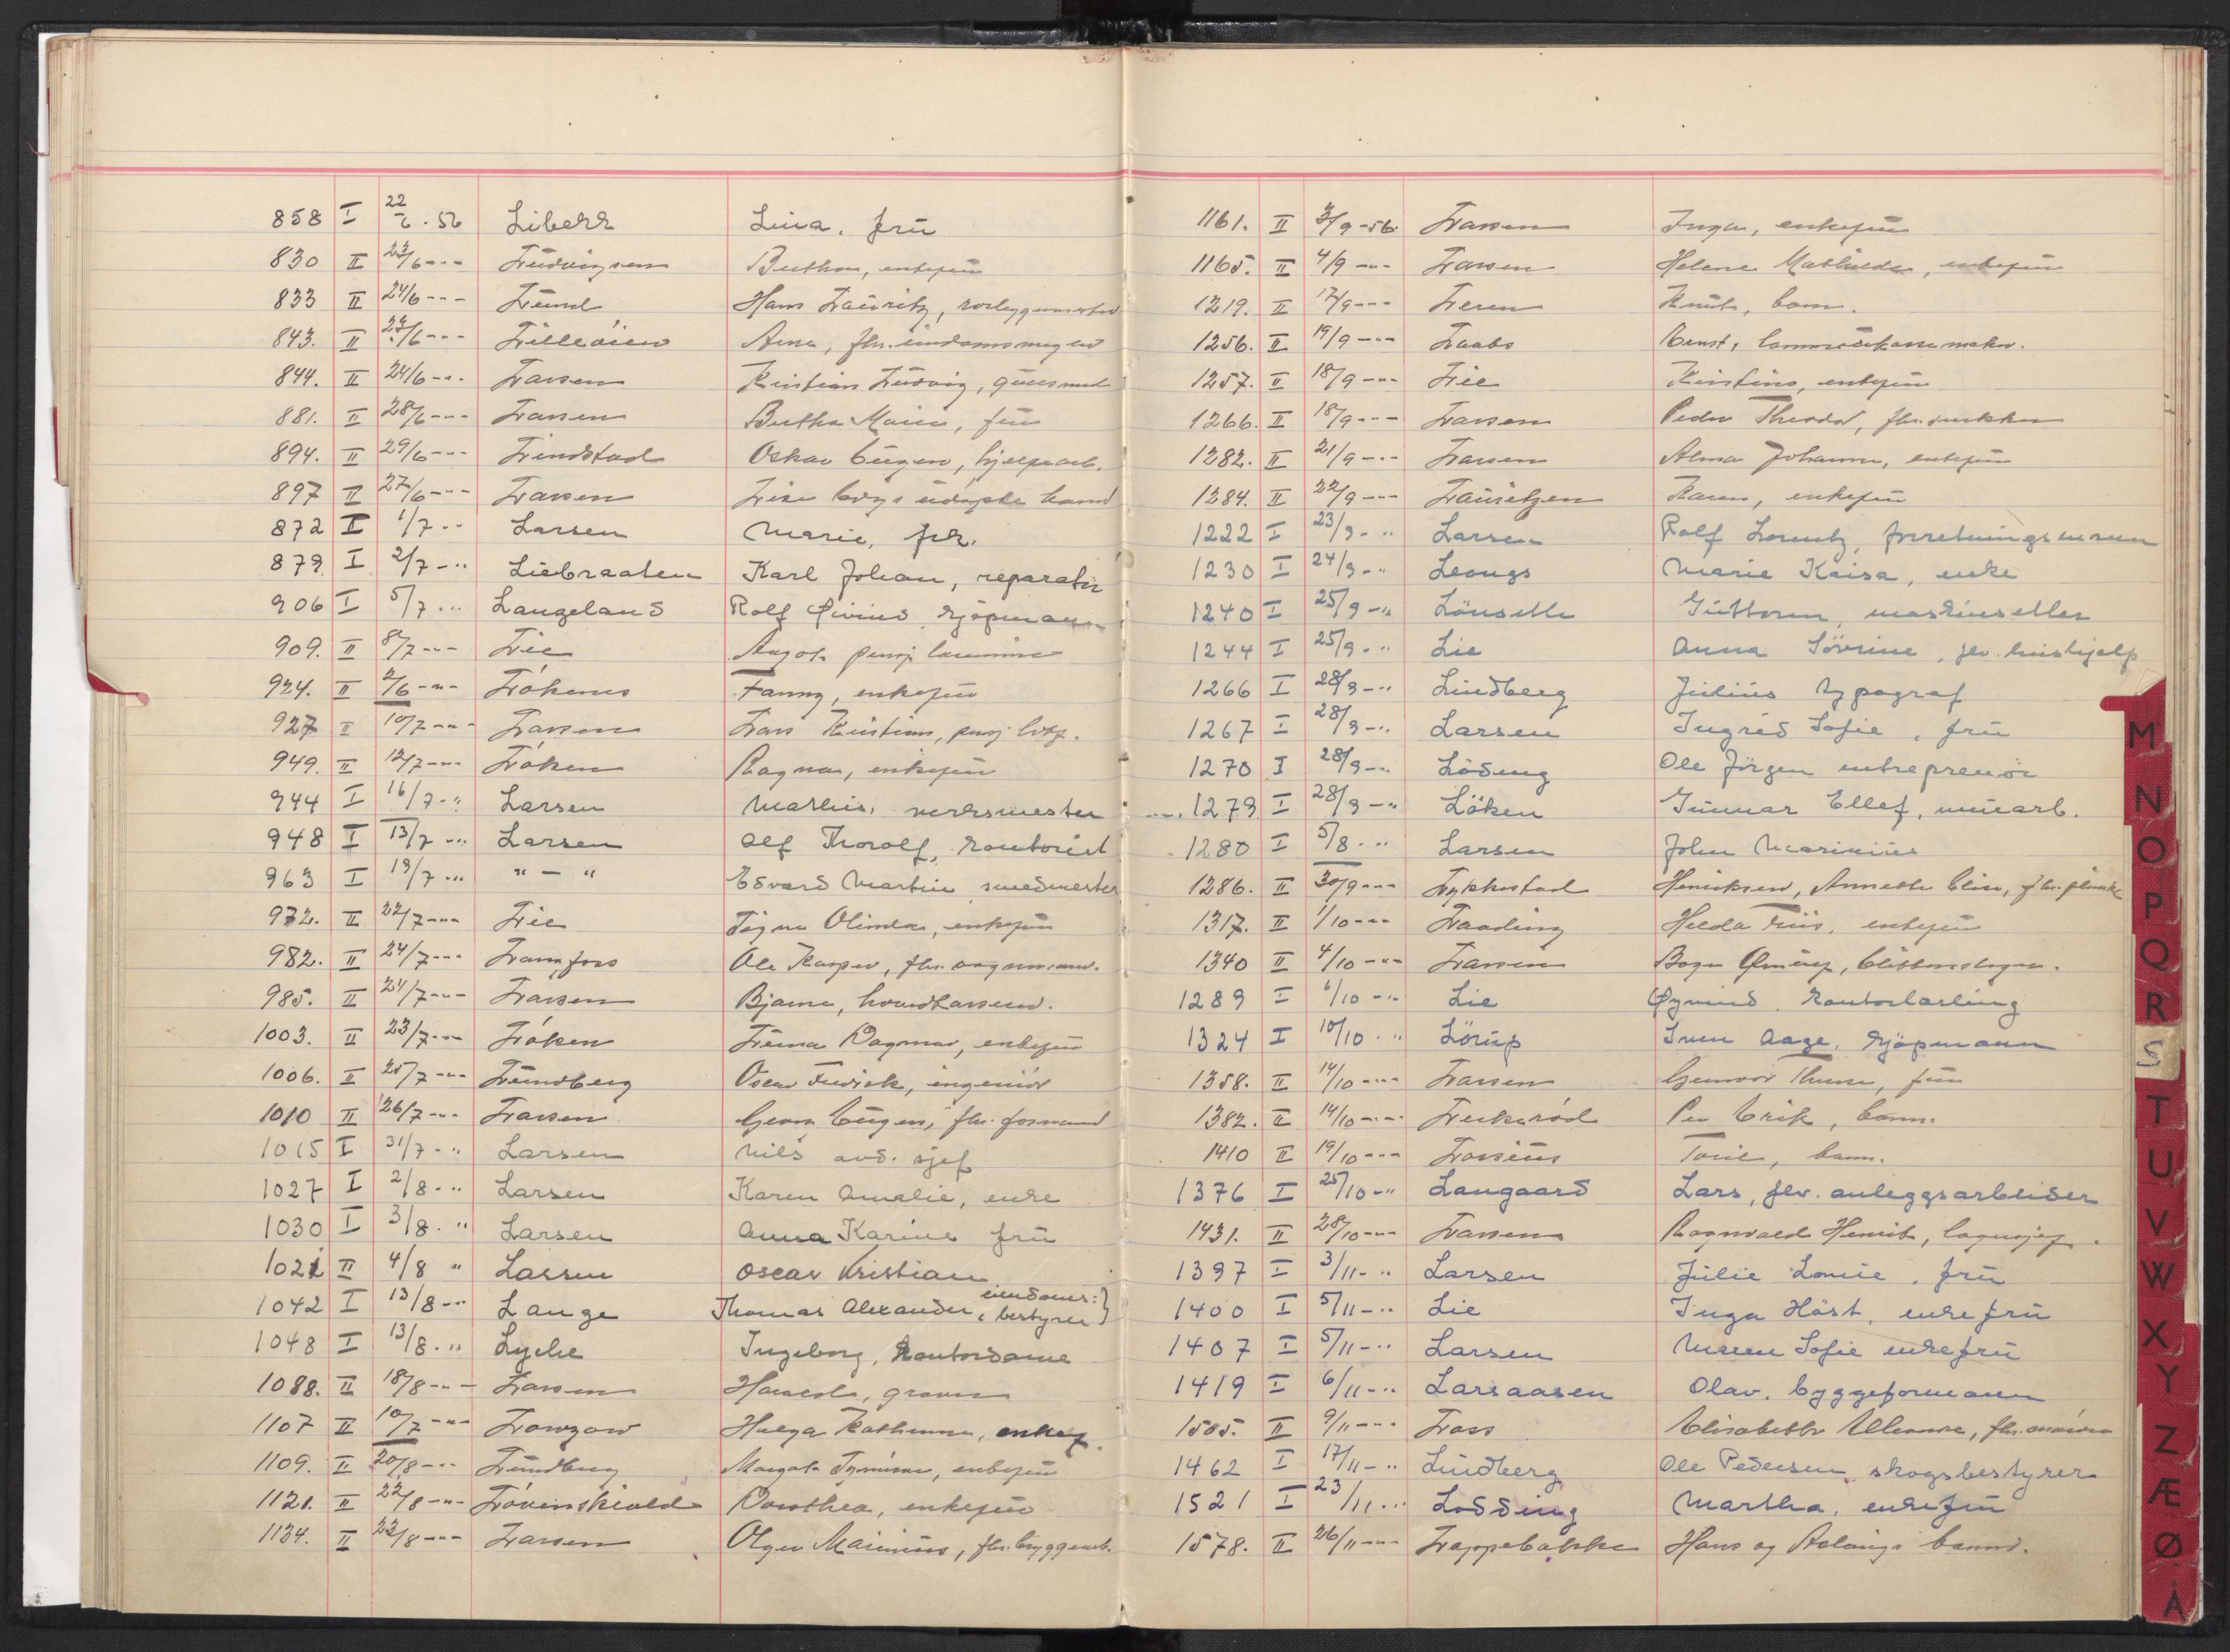 858 I 22/6 . 56 Liberr Lina. frü
830 II 23/6 -"- Ludvigsen Berthea, enkefrü
833 II 24/6 -"- Lund Hans Lauritz, rørleggermester
843. II 23/6 -"- Lilleåien Arna, fhv.
844. II 24/6 -"- Larsen Kristian Ludvig,
881. II 28/6 -"- Larsen Berthe Marie, frü
894. II 29/6 -"- Lindstad Oskar Eugen, hjelpearb.
897 II 27/6 -"- Larsen udøpte barn
872 I 1/7 -"- Larsen Marie, frk.
879 I 2/7 -"- Liebraaten Karl Johan, reparatør
906 I 5/7 -"- Langeland Rolf Øivind, kjøpmann
909. II 8/7 -"- Lie Aagot
924. II 2/6 -"- Løkenes Fanny, enkefrü
927 II 10/7 -"- Larsen Lars Kristian,
949. II 12/7 -"- Løken Ragna, enkefrü
944 I 16/7 -"- Larsen Marius, verksmester
948 I 13/7 -"- Larsen Alf Thorolf, kontorist
963 I 19/7 -"- " - " Edvard Martin smedmester
972. II 22/7 -"- Lie Signe Olinda, enkefrü
982. II 24/7 -"- Langfoss Ole Kasper, fhv.
985. II 24/7 -"- Larsen Bjarne,
1003. II 23/7 -"- Løken Dagmar, enkefrü
1006. II 25/7 -"- Lundberg Oscar Fredrik, ingeniør
1010 II 26/7 -"- Larsen Georg Eugen, fhv. formand
1015 I 31/7 -"- Larsen Nils avd. sjef
1027 I 2/8 -"- Larsen Karen Amalie, enke
1030 I 3/8 . " Larsen Anna Karine frü
1021 II 4/8 " Larsen Oscar Kristian
1042 I 13/8 -"- Lange Thomas Alexander, eiendoms: bestyrer}
1048 I 13/8 . " Lyche Ingeborg, kontordame
1088. II 18/8 -"- Larsen Harald,
1107 II 10/7 -"- Lowzow Helga Kathrine, enkef.
1109. II 20/8 -"- Lundberg Margot enkefrü
1121. II 22/8 -"- Løvenskiold Dorothea, enkefrü
1134. II 23/8 -"- Larsen Olger Marinius, fhv. bryggearb.
1161. II 3/9 -56. Larsen Inga, enkefrü
1165. II 4/9 -"- Larsen Helene Mathilde, enkefrü
1219. II 17/9 -"- Leren Knut, barn.
1256. II 19/9 -"- Laabs Ernst,
1257. II 18/9 -"- Lie Kristine, enkefrü
1266. II 18/9 -"- Larsen Peder Theodor, fhv. snekker
1282. II 21/9 -"- Larsen Alma Johanne, enkefrü
1284. II 22/9 -"- Lauritzen Karen, enkefrü
1222 I 23/9 - " Larsen Rolf Lorentz, forretningsmann
1230 I 24/9 - " Leongs Marie Kaisa, enke
1240 I 25/9 - " Lönsette Guttorm, maskinsetter
1244 I 25/9 - " Lie Anna Sövrine, fhv. hushjelp
1266 I 28/9 - " Lindberg Julius typograf
1267 I 28/9 - " Larsen Ingrid Sofie, frü
1270 I 28/9 - " Lödeng Ole Jörgen entreprenör
1279 I 28/9 - " Löken Gunnar Ellef, murarb.
1280 I 5/8 . " Larsen John Marinius
1286. II 30/9 -"- Lykkestad Henriksen, Annette Elise, fhv.
1317. II 1/10 -"- Laading Helda Friis, enkefrü
1340 II 4/10 -"- Larsen
1289 I 6/10 - " Lie Øyvind, kontorlærling
1324 I 10/10 . " Lörup Sven Aage, kjøpmann
1358. II 14/10 -"- Larsen Gunvor frü
1382. II 14/10 -"- Leikerød Per Erik, barn.
1410 II 19/10 -"- Lorsius barn.
1376 I 25/10 - " Langaard Lars, fhv. anleggsarbeider
1431. II 28/10 -"- Larsen Ragnvald Henrik, lagersjef.
1397 I 3/11 - " Larsen Julie Lovise, frü
1400 I 5/11 - " Lie Inga Höst, enkefrü
1407 I 5/11 - " Larsen Maren Sofie enkefrü
1419 I 6/11 - " Larsaasen Olav, byggeformann
1505. II 9/11 -"- Lass Elisabeth
1462 I 17/11 - " Lindberg Ole Pedersen, skogsbestyrer
1521 I 23/11 . " Lodding Martha, enkefrü
1578. II 26/11 -"- Lappebakke Hans og barn.
M
N
O
P
Q
R
S
T
U
V
W
X
Y
Z
Æ
Ø
Å